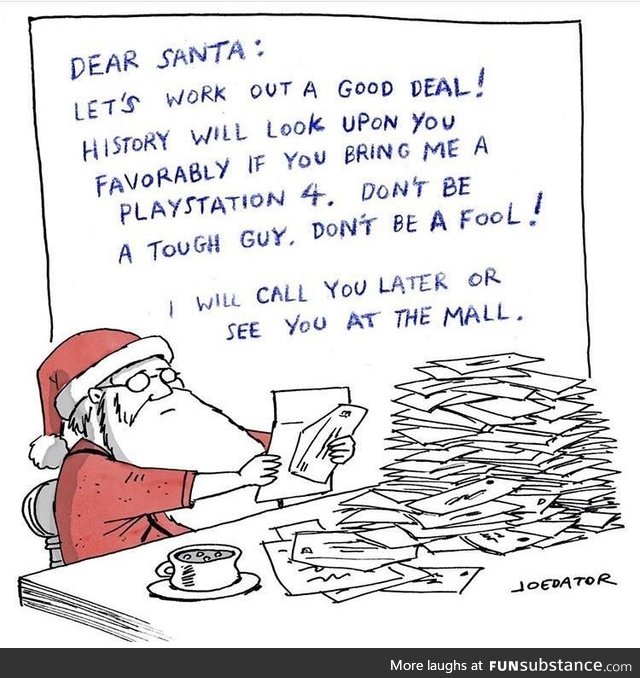 DEAR SANTA:
LET'S WORK OUT A GOOD DEAL!
HISTORY WILL LOOK UPON YOU
FAVORABLY IF YOU BRING ME A
PLAYSTATION 4. DON'T BE
A TOUGH GUY. DON'T BE A FOOL!
I WILL CALL YOU LATER OR
SEE YOU AT THE MALL.
JOEDATOR
More laughs at FUNsubstance.com